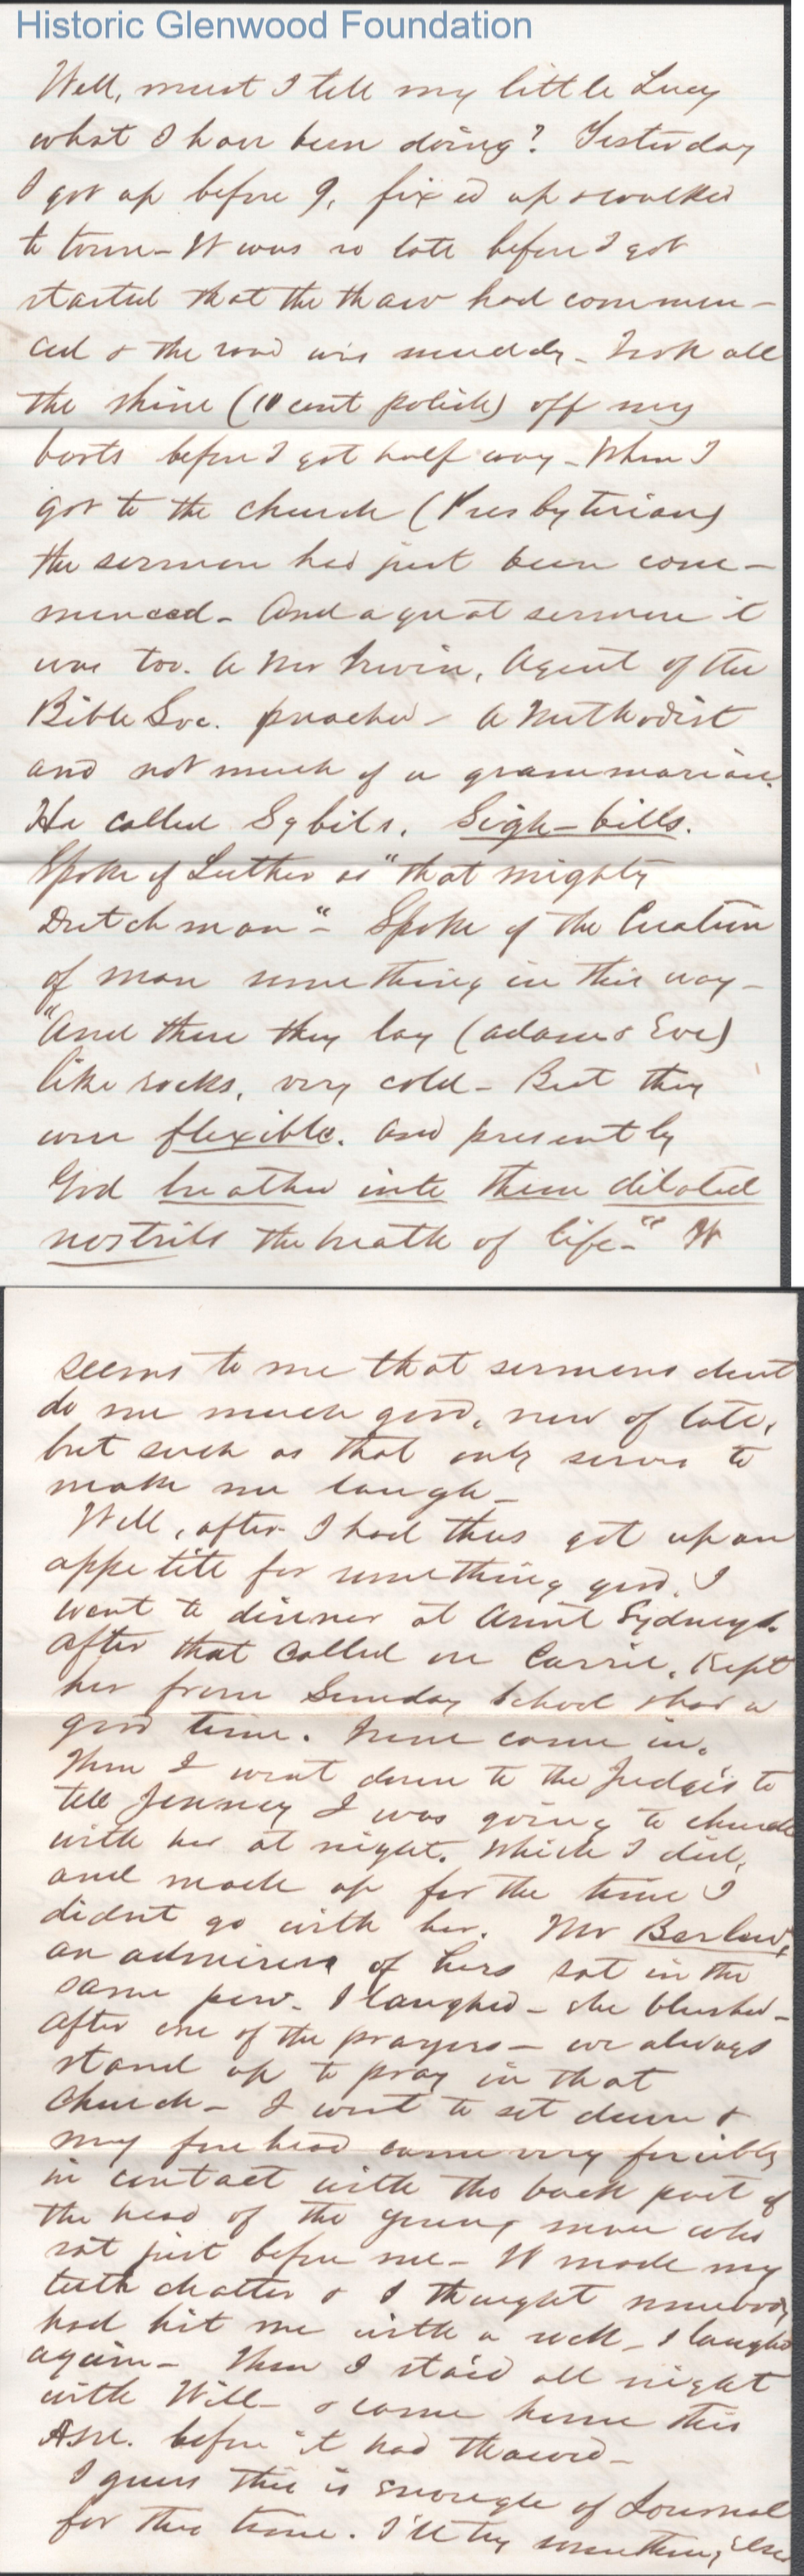 Historic Glenwood Foundation
Well, must I tell my little Lucy
what I have been doing? Yesterday
I got up before 9, fixed up & walked
to town - It was so late before I got
started that the thaw had commen-
ced & the road was muddy - Took all
the shine (10 cent polish) off my
boots before I got half way - When I
got to the church (Presbyterian)
the sermon had just been com-
menced - And a great sermon it
was too. A Mr Irwin, Agent of the
Bible Soc. preached - A Methodist
and not much of a grammarian.
He called Sybils, Sigh-bills.
Spoke of Luther as "that mighty
Dutchman" - Spoke of the Creation
of man something in this way -
"And there they lay (adam & Eve)
like rocks, very cold - But they
were flexible. and presently
God breathed into them dilated
nostrils the breath of life -" It
seems to me that sermons dont
do me much good, now of late,
but such as that only serves to
make me laugh -
Well, after I had thus got up an
appetite for something good, I
went to dinner at Aunt Sydney's.
After that called on Carrie, Kept
her from Sunday School & had a
good time. None came in.
Then I went down to the Judge's to
tell Jenney I was going to church
with her at night. Which I did,
and made up for the time I
didnt go with her. Mr Barlow,
an admirer of hers sat in the
same pew - I laughed - she blushed -
After one of the prayers - we always
stand up to pray in that
Church - I went to set down &
my forehead came very forcibly
in contact with the back part of
the head of the young man who
sat just before me - It made my
teeth chatter & I thought somebody
had hit me with a rock - I laughed
again - Then I staid all night
with Will - & came home this
A.M. before it had thawed -
I guess this is enough of Journal
for this time. I'll try something else